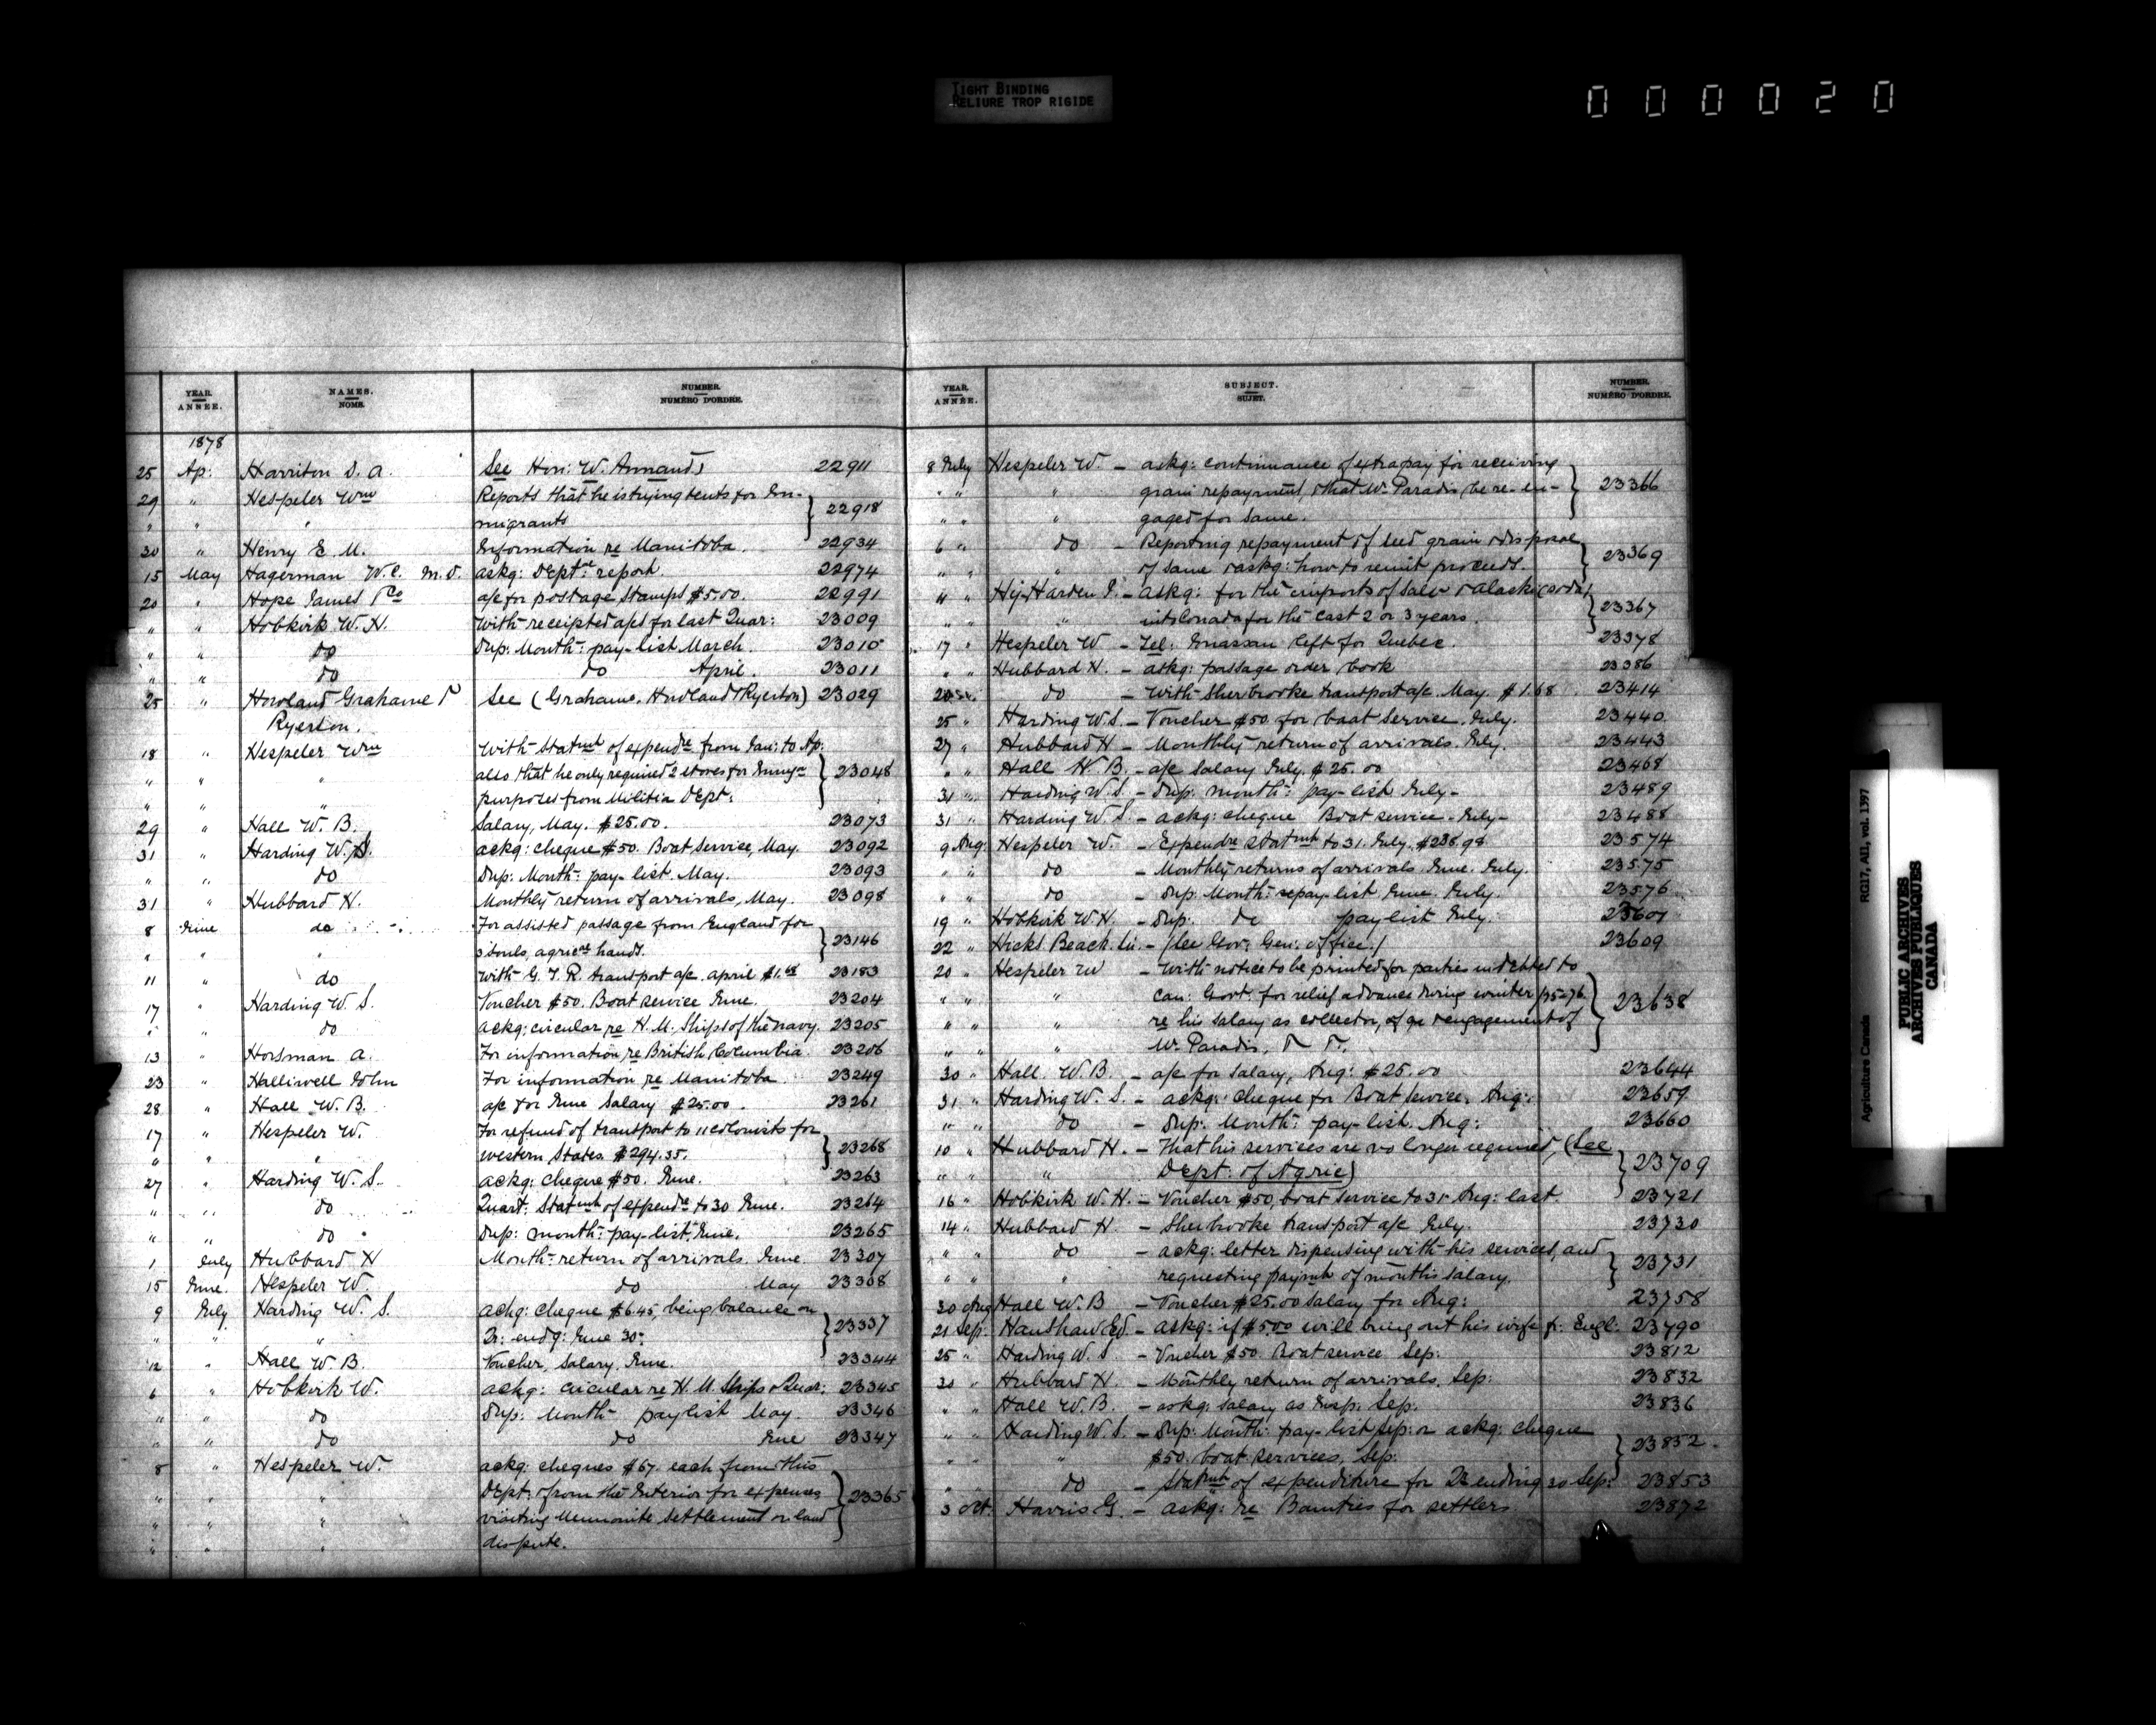 TIGHT BINDING
RELIURE TROP RIGIDE
000020
YEAR. ANNÉE. NAMES. NOMS. NUMBER. NUMÉRO D'ORDRE.
1878
25 Ap: Harriton S. A. See Hon: W. Annand 22911
29 " Hespeler Wm Reports that he is trying tents for Em-
" " " migrants } 22918
30 " Henry E M. Information re Manitoba. 22934
15 May Hagerman W.C. M.D. askg: Deptal report. 22974
20 " Hope James & Co a/c for postage stamps $5.00. 22991
" " Hobkirk W. H. With receipted a/cs for last Quar: 23009
" " do Dup: Month: pay-list March. 23010
" " do do April. 23011
25 " Howland Grahame & See (Grahame, Howland & Ryerson) 23029
Ryerson.
18 " Hespeler Wm With Statmt of expendre from Jan: to Ap:
" " " also that he only required 2 stoves for Immgn } 23048
" " " purposes from Militia Dept:
29 " Hall W. B. Salary, May. $25.00. 23073
31 " Harding W. S. ackg: cheque $50. Boat Service, May. 23092
" " do Dup: Month: pay-list. May. 23093
31 " Hubbard H. Monthly return of arrivals, May. 23098
8 June do For assisted passage from England for
" " " 3 souls, agrical hands. } 23146
11 " do With G. T. R. transport a/c. April $1.68 23183
17 " Harding W. S. Voucher $50. Boat service June. 23204
" " do ackg: circular re H. M. Ships of the navy. 23205
13 " Horsman A. For information re British Columbia. 23206
23 " Halliwell John For information re Manitoba. 23249
28 " Hall W. B. a/c for June Salary $25.00. 23261
17 " Hespeler W. For refund of transport to 11 colonists for
" " " western States. $294.35. } 23268
27 " Harding W. S. ackg: cheque $50. June. 23263
" " do Quart: Statmt of expendre to 30 June. 23264
" " do Dup: month: pay-list, June. 23265
1 July Hubbard H Month: return of arrivals. June 23307
15 June. Hespeler W. do May 23308
9 July Harding W. S. ackg: cheque $6.45, being balance on
" " " Qr: endg: June 30: } 23337
12 " Hall W. B. Voucher, Salary, June. 23344
6 " Hobkirk W. ackg: circular re H. M. Ships & Quar: 23345
" " do Dup: Month: pay list May. 23346
" " do do June 23347
8 " Hespeler W. ackg: cheques $67. each from this
" " " Dept: & from the Interior for expenses
" " " visiting Mennonite Settlement on land } 23365
" " " dispute.
YEAR. ANNÉE. SUBJECT. SUJET. NUMBER. NUMÉRO D'ORDRE.
8 July Hespeler W. - askg: continuance of extra pay for receiving
" " " grain repayment, & that Mr Paradis be re-en- } 23366
" " " gaged for same.
6 " do - Reporting repayment of seed grain & disposal
" " " of same & askg: how to remit proceeds. } 23369
11 " Harden - askg: for the imports of
" " " into Canada for the last 2 or 3 years. } 23367
17 " Hespeler W - Tel: left for Quebec. 23378
" " Hubbard H. - askg: passage order book 23386
do - With Sherbrooke transport a/c. May. $1.68 23414
25 " Harding W.S. - Voucher $50. for boat service. July. 23440
27 " Hubbard H - Monthly return of arrivals. July. 23443
" " Hall W. B. - a/c Salary July. $25.00 23468
31 " Harding W. S. - Dup: month: pay-list July - 23489
31 " Harding W. S. - ackg: cheque Boat service - July - 23488
9 Aug: Hespeler W. - Expendre Statmt to 31. July. $238.98 23574
" " do - Monthly returns of arrivals June. July. 23575
" " do - Dup: Month: pay-list June. July. 23576
19 " Hobkirk W.H. - Dup: do pay list July. 23601
22 " Hicks Beach. - (See Gov: Gen: office.) 23609
20 " Hespeler W - With notice to be printed for parties indebted to
" " " Can: Govt. for relief advances during winter 75-76
" " " re his salary as collector, & engagement of } 23638
" " " Mr Paradis, & &.
30 " Hall. W. B. - a/c for Salary, Aug: $25.00 23644
31 " Harding W. S. - ackg: cheque for Boat service. Aug: 23659
" " do - Dup: Month: pay-list. Aug: 23660
10 " Hubbard H. - That his services are no longer required, (See
" " " Dept. of Agric) } 23709
16 " Hobkirk W. H. - Voucher $50, boat service to 31 Aug: last 23721
14 " Hubbard H. - Sherbrooke transport a/c July. 23730
" " do - ackg: letter dispensing with his services, and
" " " requesting paymt of months salary. } 23731
30 Aug Hall W. B - Voucher $25.00 salary for Aug: 23758
21 Sep: Hanshaw Ed. - askg: if $5.00 will bring out his wife fr: Engl: 23790
25 " Harding W. S - Voucher $50. Boat service Sep: 23812
30 " Hubbard H - Monthly return of arrivals, Sep: 23832
" " Hall W. B. - askg: salary as Insp: Sep: 23836
" " Harding W. S. - Dup: Month: pay-list Sep: & ackg: cheque
" " " $50. boat services, Sep: } 23852
" do - Statmt of expenditure for Qr ending 30 Sep: 23853
3 Oct. Harris G. - askg: re Bounties for settlers 23872
Agriculture Canada RG17, AII, vol. 1397
PUBLIC ARCHIVES
ARCHIVES PUBLIQUES
CANADA